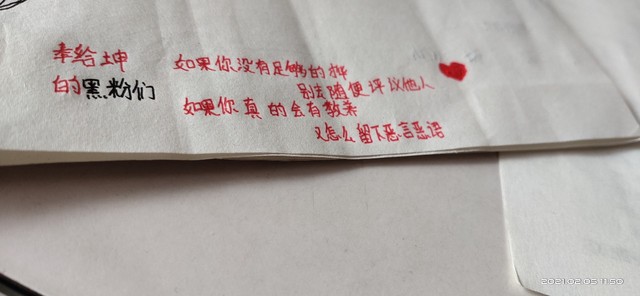 奉给坤
的黑粉们
如果你没有足够的
别去随便评议他人
如果你真的会有教养
又怎么留下恶言恶语
2021.02.05 11:50